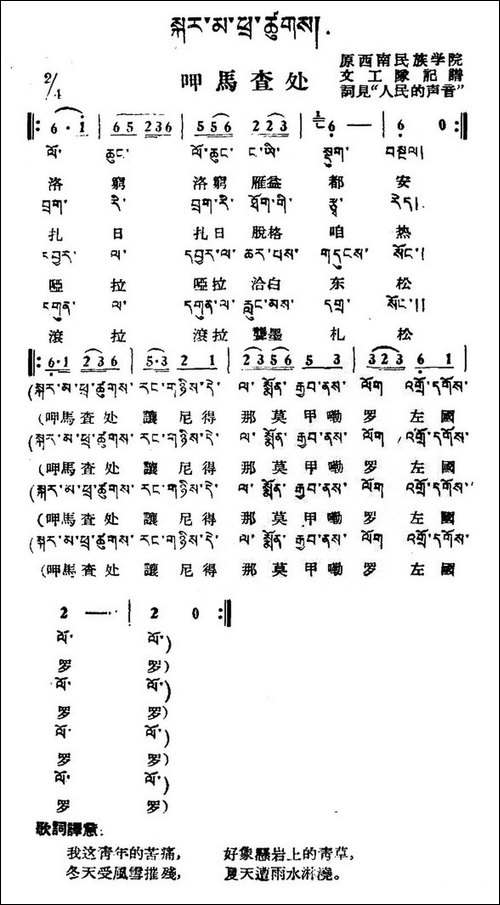 སྐར་མ་ཕྲ་ཚུགས།
呷馬查处
原西南民族学院
文工隊記譜
詞見“人民的声音”
2/4
ལོ་ ཆུང་ ལོ་ཆུང་ ང་ཡི་ སྡུག་ བསྔལ།
洛 窮 洛窮 雁益 都 安
བྲག་ རི་ བྲག་རི་ ཐོག་གི་ རྩྭ་ རེད།
扎 日 扎日 脫格 咱 热
དབྱར་ ལ་ དབྱར་ལ་ ཆར་པས་ གདུངས་ སོང་།
啞 拉 啞拉 洽白 东 松
དགུན་ ལ་ དགུན་ལ་ རླུང་མས་ དཀྲ་ སོང་།།
滾 拉 滾拉 龔墨 札 松
(སྐར་མ་ཕྲ་ཚུགས་ རང་གཉིས་དེ་ ལ་ སྨོན་ རྒྱབ་ནས་ ལོག འགྲོ་དགོས་
(呷馬查处 讓尼得 那莫甲嘞 罗 左國
(སྐར་མ་ཕྲ་ཚུགས་ རང་གཉིས་དེ་ ལ་ སྨོན་ རྒྱབ་ནས་ ལོག འགྲོ་དགོས་
(呷馬查处 讓尼得 那莫甲嘞 罗 左國
(སྐར་མ་ཕྲ་ཚུགས་ རང་གཉིས་དེ་ ལ་ སྨོན་ རྒྱབ་ནས་ ལོག འགྲོ་དགོས་
(呷馬查处 讓尼得 那莫甲嘞 罗 左國
(སྐར་མ་ཕྲ་ཚུགས་ རང་གཉིས་དེ་ ལ་ སྨོན་ རྒྱབ་ནས་ ལོག འགྲོ་དགོས་
(呷馬查处 讓尼得 那莫甲嘞 罗 左國
ལོ་ ལོ་)
罗 罗)
ལོ་ ལོ་)
罗 罗)
ལོ་ ལོ་)
罗 罗)
ལོ་ ལོ་)
罗 罗)
歌詞譯意:
我这青年的苦痛, 好象懸岩上的青草,
冬天受風雪摧殘, 夏天遭雨水淋澆。